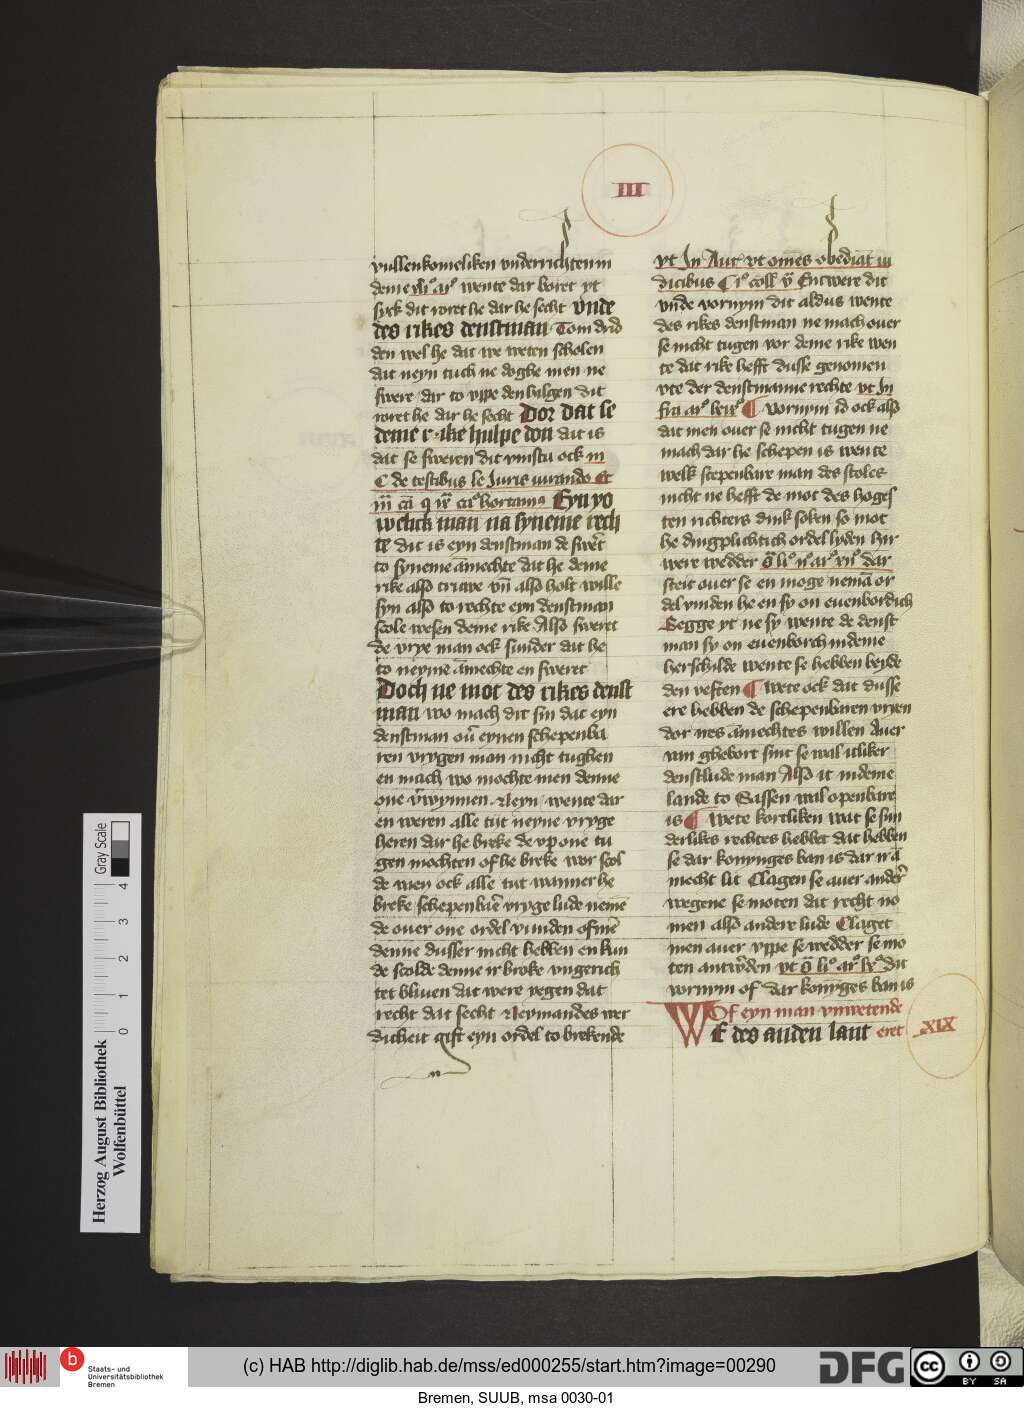 III
vullenkomeliken vnderrichten in
deme wente dar boret yt
syck dit roret he dar he secht vnde
des rikes denstman Tom drid
den wel he dat we weten scholen
dat neyn tuch ne doghe men ne
swere dar to vppe den hilgen dit
roret he dar he secht Dor dat he
deme rike hulpe don dat is
dat se sweren dit vinstu ock in
C de testibus le Juris iurando Et
Eyn yo
welick man na syneme rech
te dit is eyn denstman de swert
to syneme amechte dat he deme
rike also truwe vn also holt wille
syn also to rechte eyn denstman
scole wesen deme rike Also sweret
de vrye man ock sunder dat he
to neyme amechte en sweret
Doch ne mot des rikes denst
man wo mach dit sin dat eyn
denstman ou eynen schepenba
ren vrygen man nicht tughen
en mach wo mochte men denne
one vwynnen Neyn wente dar
en weren alle tiit neyne vryge
heren dar he breke de vp one tu
gen mochten of he breke wor scol
de men ock alle tyt wanner he
breke schepenbae vryge lude neme
de ouer one ordel vunden of me
denne dusser nicht hebben en kun
de scolde denne ir broke vngerich
tet bliuen dat were yegen dat
recht dat secht Neymandes wer
dicheit gift eyn ordel to brekende
yt In Aut vt omes obediat iu
dicibus Entwere dit
vnde vornym dit aldus wente
des rikes denstman ne mach ouer
se nicht tugen vor deme rike wen
te dat rike hefft dusse genomen
vte der denstmanne rechte vt In
fra vornym id ock also
dat men ouer se nicht tugen ne
mach dar he schepen is wente
welk scepenbare man des stoles
nicht ne hefft de mot des hoges
ten richters dink soken so mot
he dingplichtich ordel lyden hir
were wedder dar
steit ouer se en moge nema or
del vinden he en sy on euenbordich
Segge yt ne sy wente de denst
man sy on euenborch in deme
herschilde wente se hebben beyde
den vesten wete ock dat dusse
ere hebben de schepenbaren vryen
dor nes amechtes willen Auer
van ghebort sint se wal itliker
denstlude man Also it in deme
lande to Sassen wal openbare
is wete kortliken wat se sun
derlikes rechtes hebbet dat hebben
se dar konynges ban is dar n a
mecht lit Clagen se auer ander
wegene se moten dat recht no
men also andere lude Claget
men auer vppe se wedder se mo
ten antwerden vt dit
vornym of dar konynges ban is
Of eyn man vnwetende
WE des anden lant eret XIX
Herzog August Bibliothek
Wolfenbüttel
Gray Scale
0 1 2 3 4
b
Staats- und
Universitätsbibliothek
Bremen
(c) HAB http://diglib.hab.de/mss/ed000255/start.htm?image=00290
DFG
cc BY SA
Bremen, SUUB, msa 0030-01